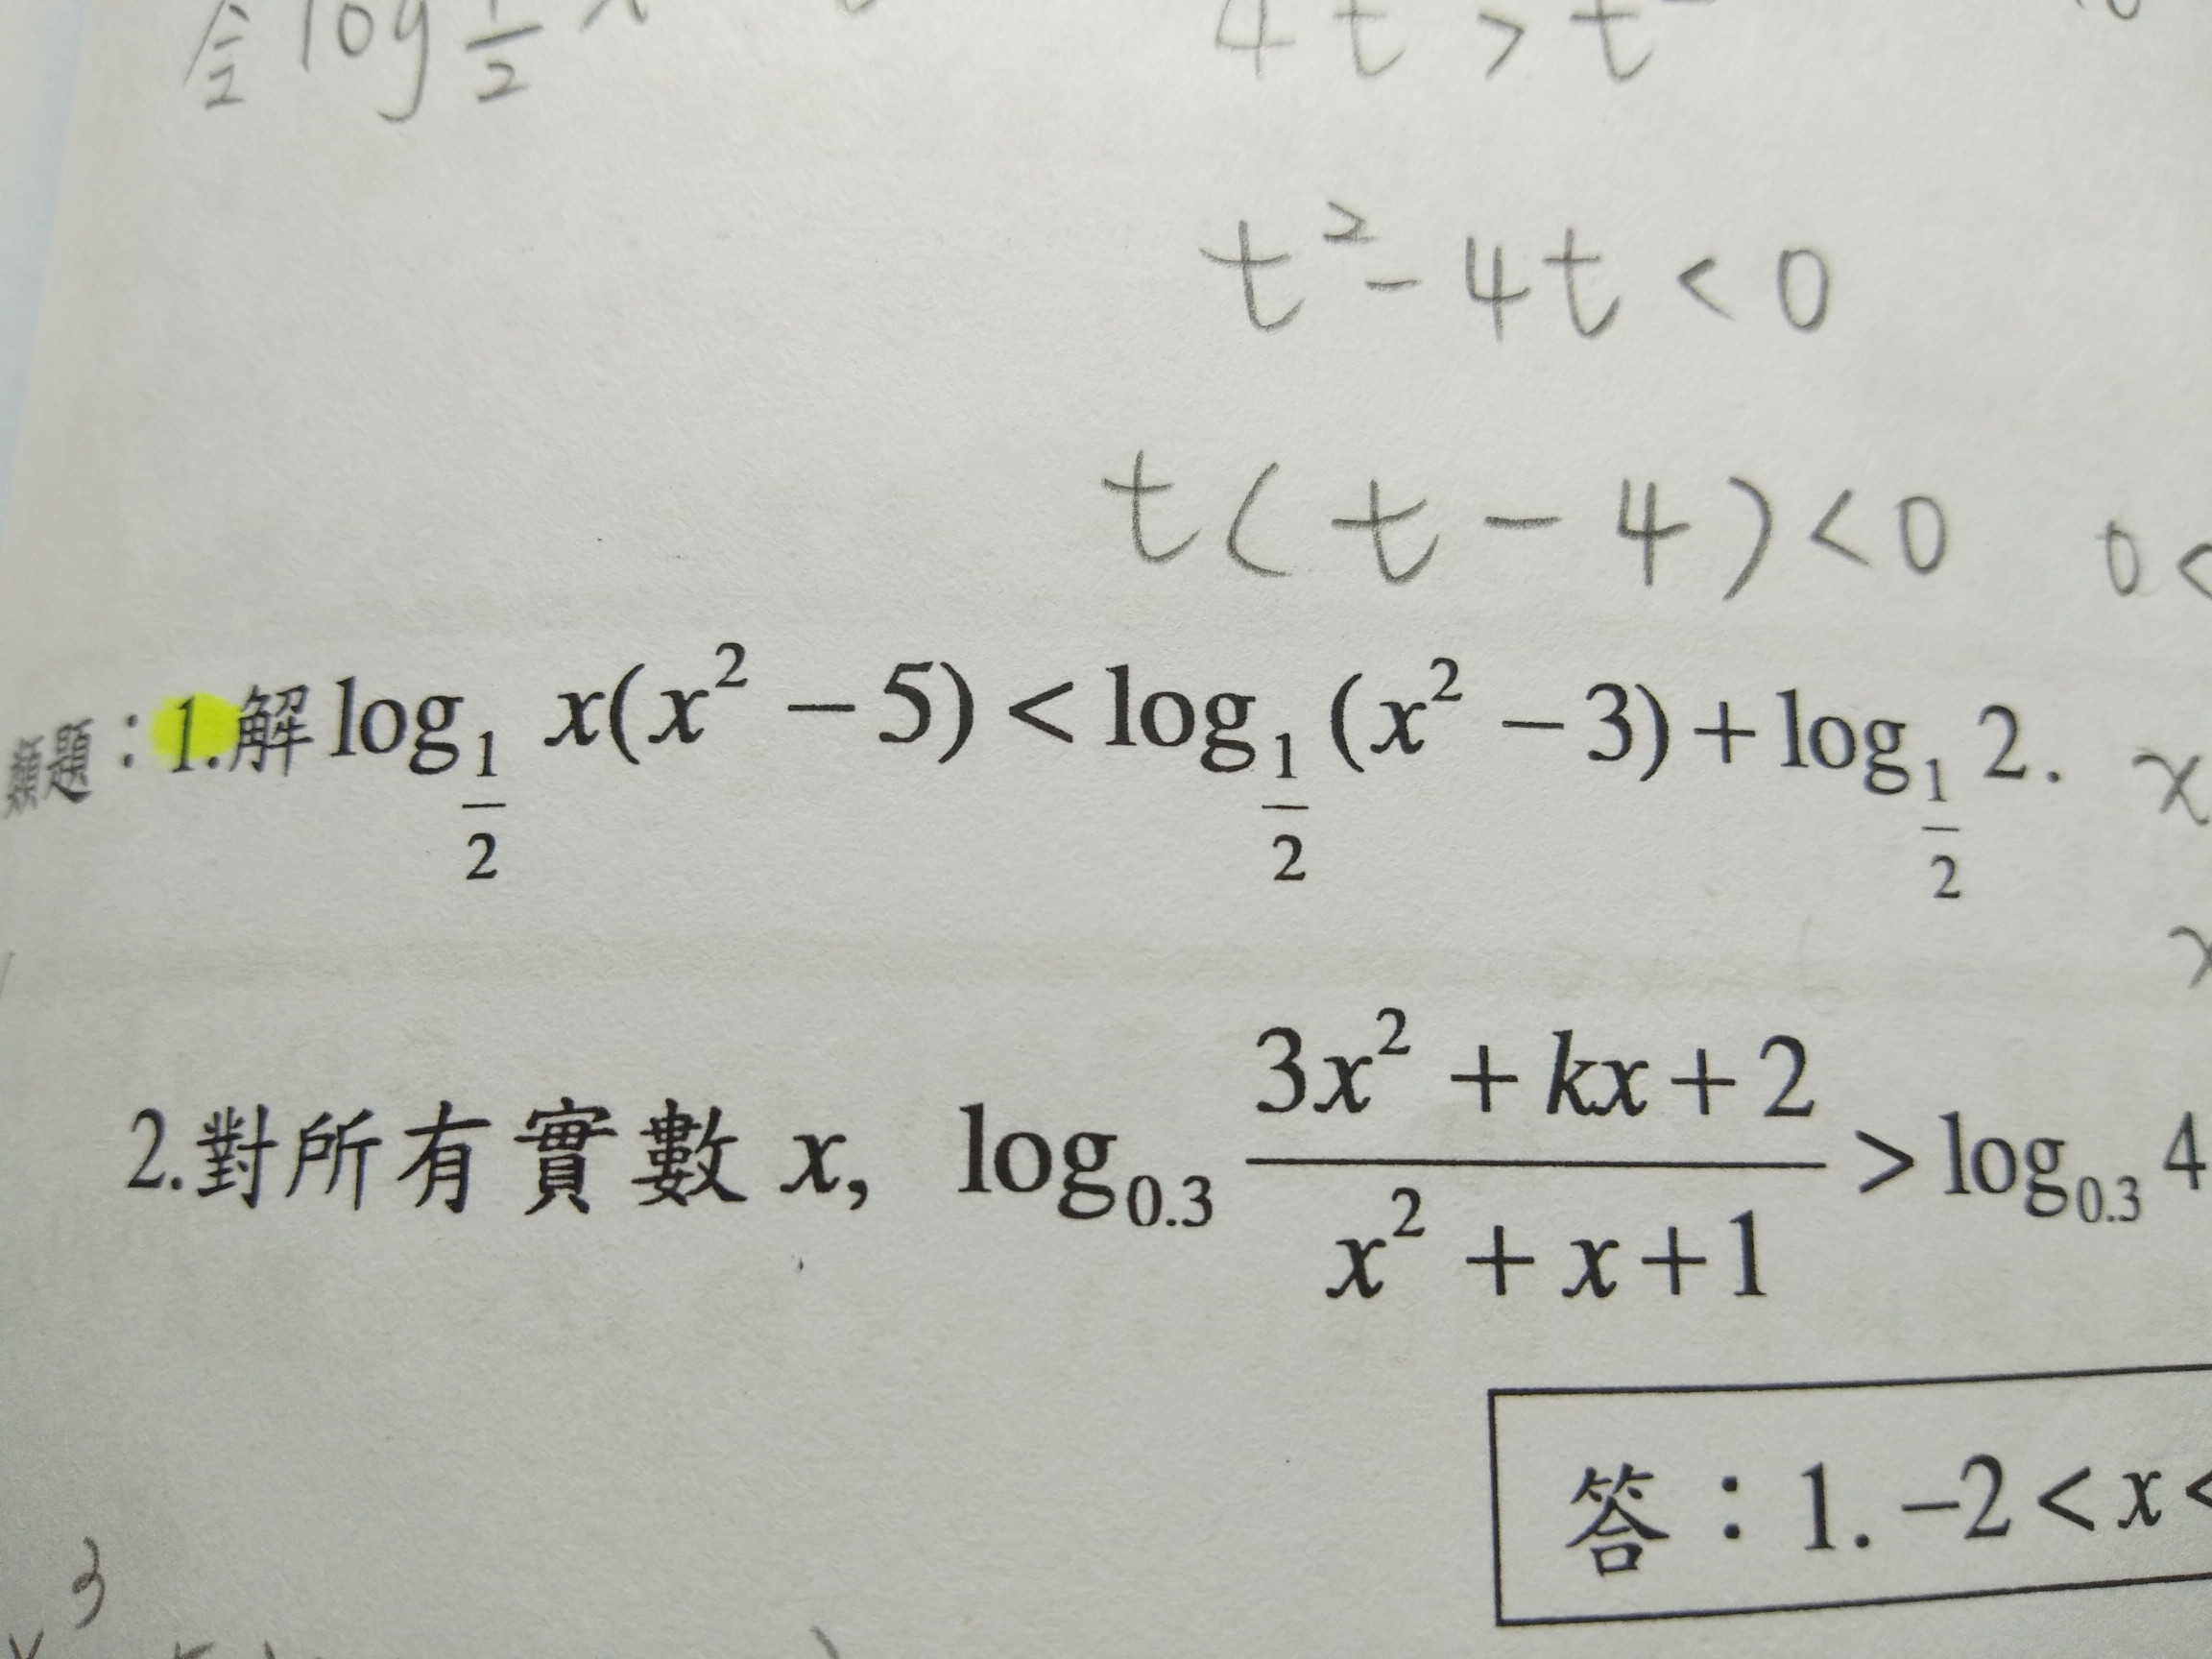 令 log 1/2 x
4t > t
t² - 4t < 0
t ( t - 4 ) < 0 0 <
類題：1.解 log_{1/2} x(x² − 5) < log_{1/2} (x² − 3) + log_{1/2} 2. x
x
2.對所有實數 x, log_{0.3} (3x² + kx + 2)/(x² + x + 1) > log_{0.3} 4
答：1. −2 < x <
3